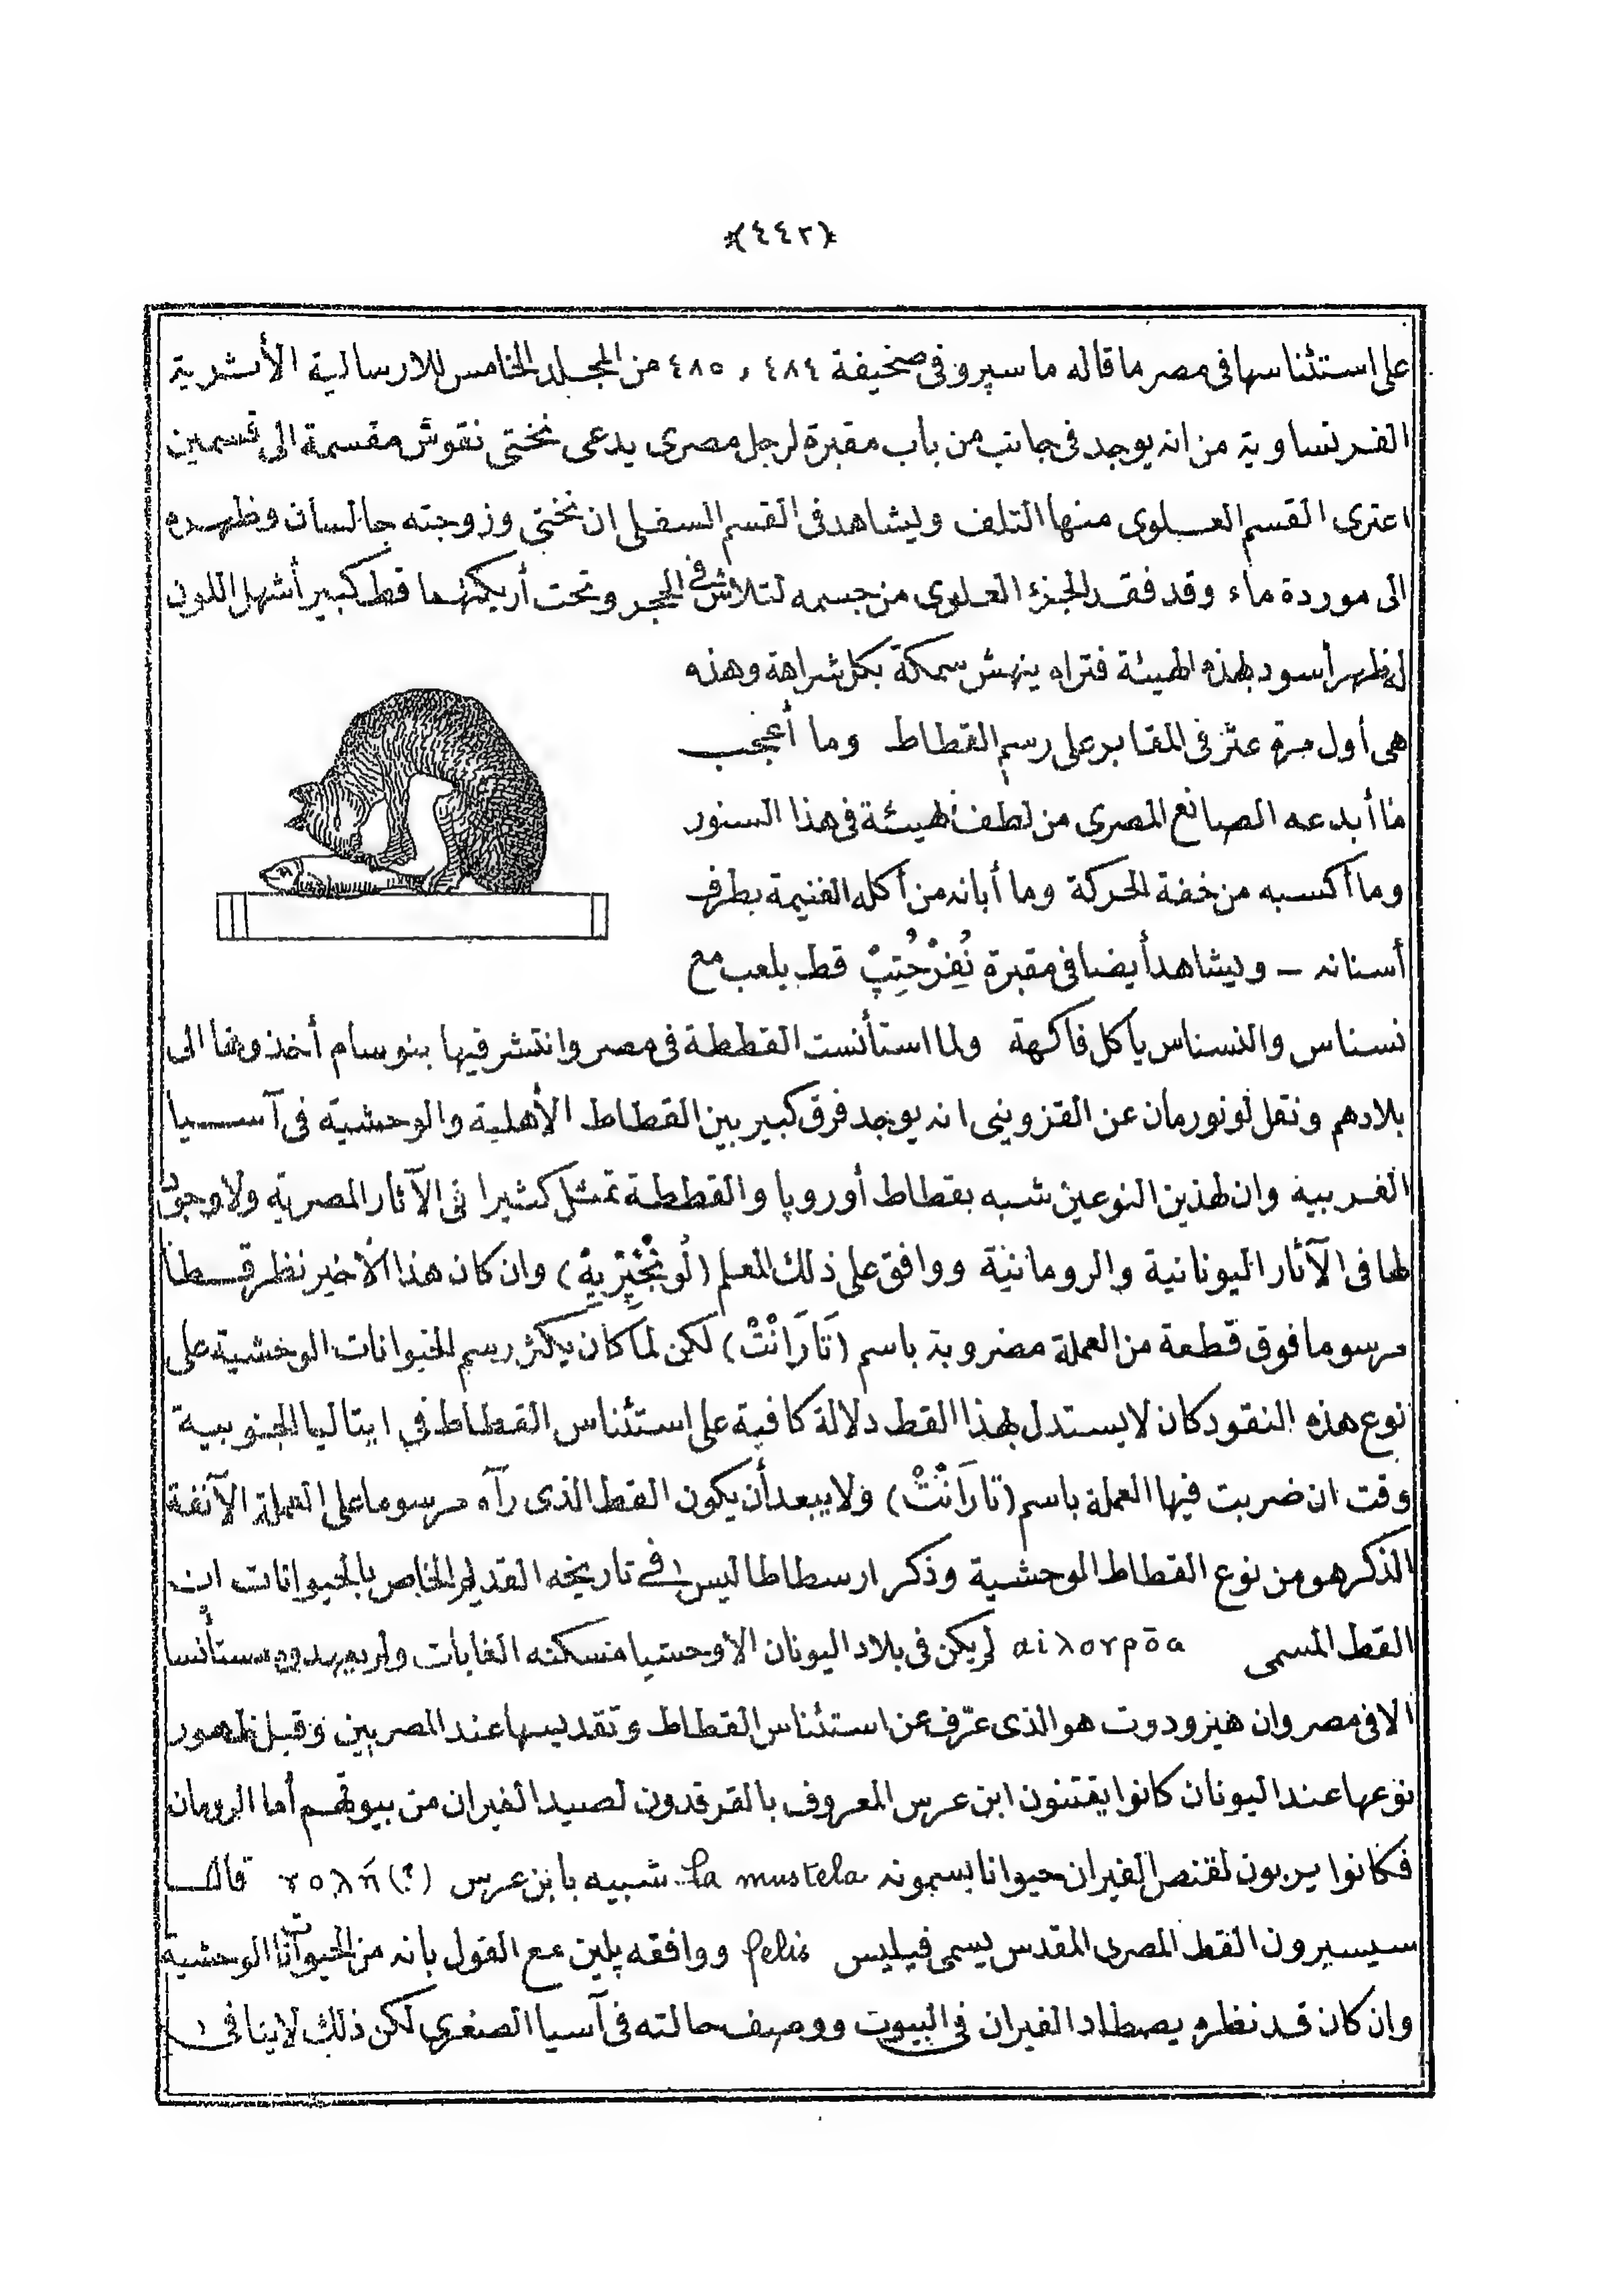 ﴿٤٤٢﴾
على استئناسها فى مصر ما قاله ماسپرو فى صحيفة ٤٨٤ و ٤٨٥ من المجلد الخامس للارسالية الأثرية
الفرنساوية من انه يوجد فى جانب من باب مقبرة لرجل مصرى يدعى نختى نقوش مقسمة الى قسمين
اعترى القسم العلوى منها التلف ويشاهد فى القسم السفلى ان نختى وزوجته جالسان وظهره
الى موردة ماء وقد فقد الجزء العلوى من جسمه لتلاش فى الحجر وتحت أريكتهما قط كبير أشهل اللون
له ظهر أسود بهذه الهيئة فتراه ينهش سمكة بكل شراهة وهذه
هى أول مرة عثر فى المقابر على رسم القطاط وما أعجب
ما أبدعه الصانع المصرى من لطف الهيئة فى هذا السنور
وما أكسبه من خفة الحركة وما أبانه من أكله الغنيمة بطرف
أسنانه — ويشاهد أيضا فى مقبرة نُفِرْحُتِپْ قط يلعب مع
نسناس والنسناس ياكل فاكهة ولما استأنست القططة فى مصر وانتشر فيها بنوسام أخذوها الى
بلادهم ونقل لونورمان عن القزوينى انه يوجد فرق كبير بين القطاط الأهلية والوحشية فى آسيا
الغربية وان لهذين النوعين شبه بقطاط أوروپا والقططة تمثل كثيرا فى الآثار المصرية ولا وجود
لها فى الآثار اليونانية والرومانية ووافق على ذلك المعلم (لُونْجْپِرْيِيهْ) وان كان هذا الأخير نظر قطا
مرسوما فوق قطعة من العملة مضروبة باسم (تَارَانْتْ) لكن لما كان يكثر رسم الحيوانات الوحشية على
نوع هذه النقود كان لا يستدل بهذا القط دلالة كافية على استئناس القطاط فى ايتاليا الجنوبية
وقت ان ضربت فيها العملة باسم (تارَانْتْ) ولا يبعد أن يكون القط الذى رآه مرسوما على العملة الآنفة
الذكر هو من نوع القطاط الوحشية وذكر ارسطاطاليس فى تاريخه القديم الخاص بالحيوانات ان
القط المسمى αἰλουρōα لم يكن فى بلاد اليونان الا وحشيا مسكنه الغابات ولم يعهد مستأنسا
الا فى مصر وان هيرودوت هو الذى عرّف عن استئناس القطاط وتقديسها عند المصريين وقبل ظهور
نوعها عند اليونان كانوا يقتنون ابن عرس المعروف بالقرقدون لصيد الفيران من بيوتهم أما الرومان
فكانوا يربون لقنص الفيران حيوانا يسمونه la mustela شبيه بابن عرس (؟) γολή قال
سيسيرون القط المصرى المقدس يسمى فيليس felis ووافقه پلين مع القول بانه من الحيوانات الوحشية
وان كان قد نظره يصطاد الفيران فى البيوت ووصف حالته فى آسيا الصغرى لكن ذلك لا ينافى